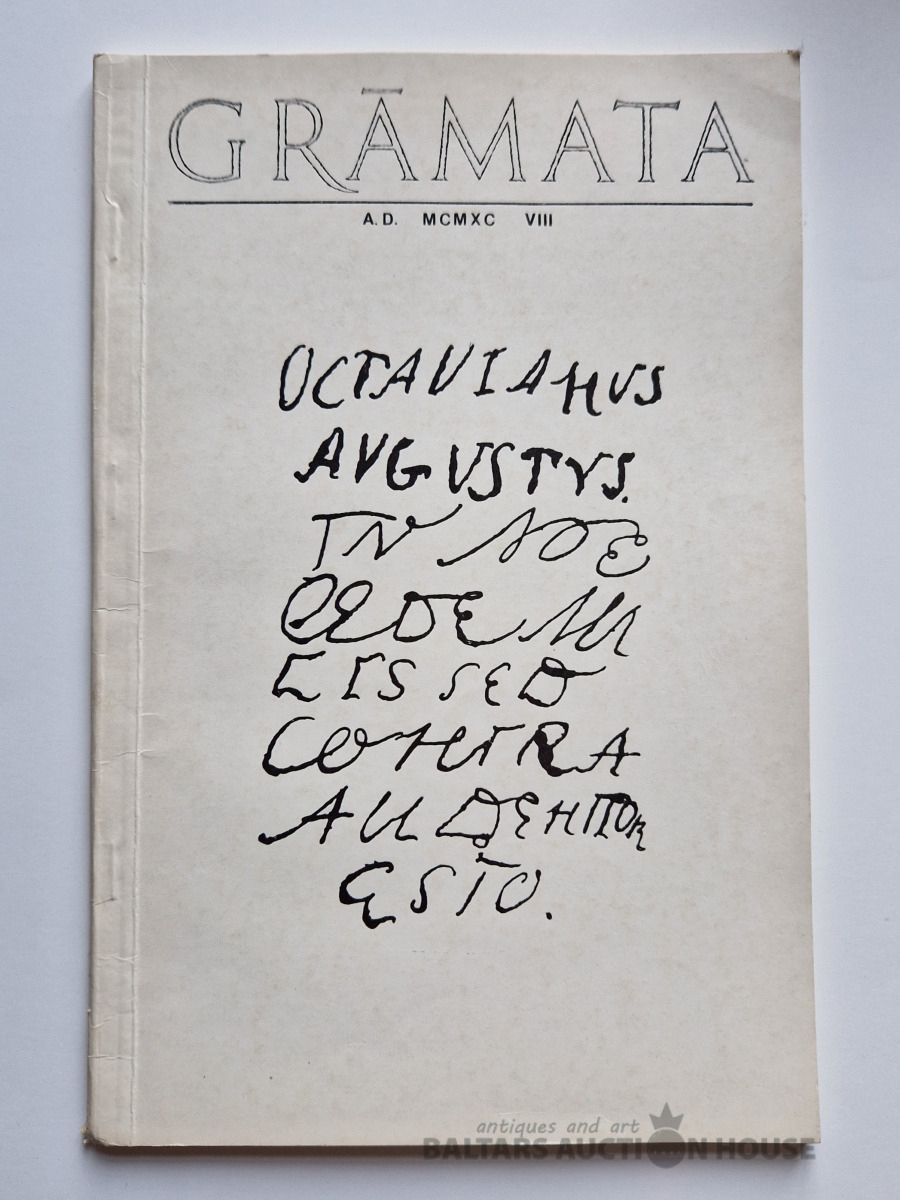 GRĀMATA
A.D. MCMXC VIII
OCTAVIANUS
AVGVSTVS.
TV NE
CEDE MA
LIS SED
CONTRA
AUDENTIOR
ESTO.
antiques and art
BALTARS AUCTION HOUSE